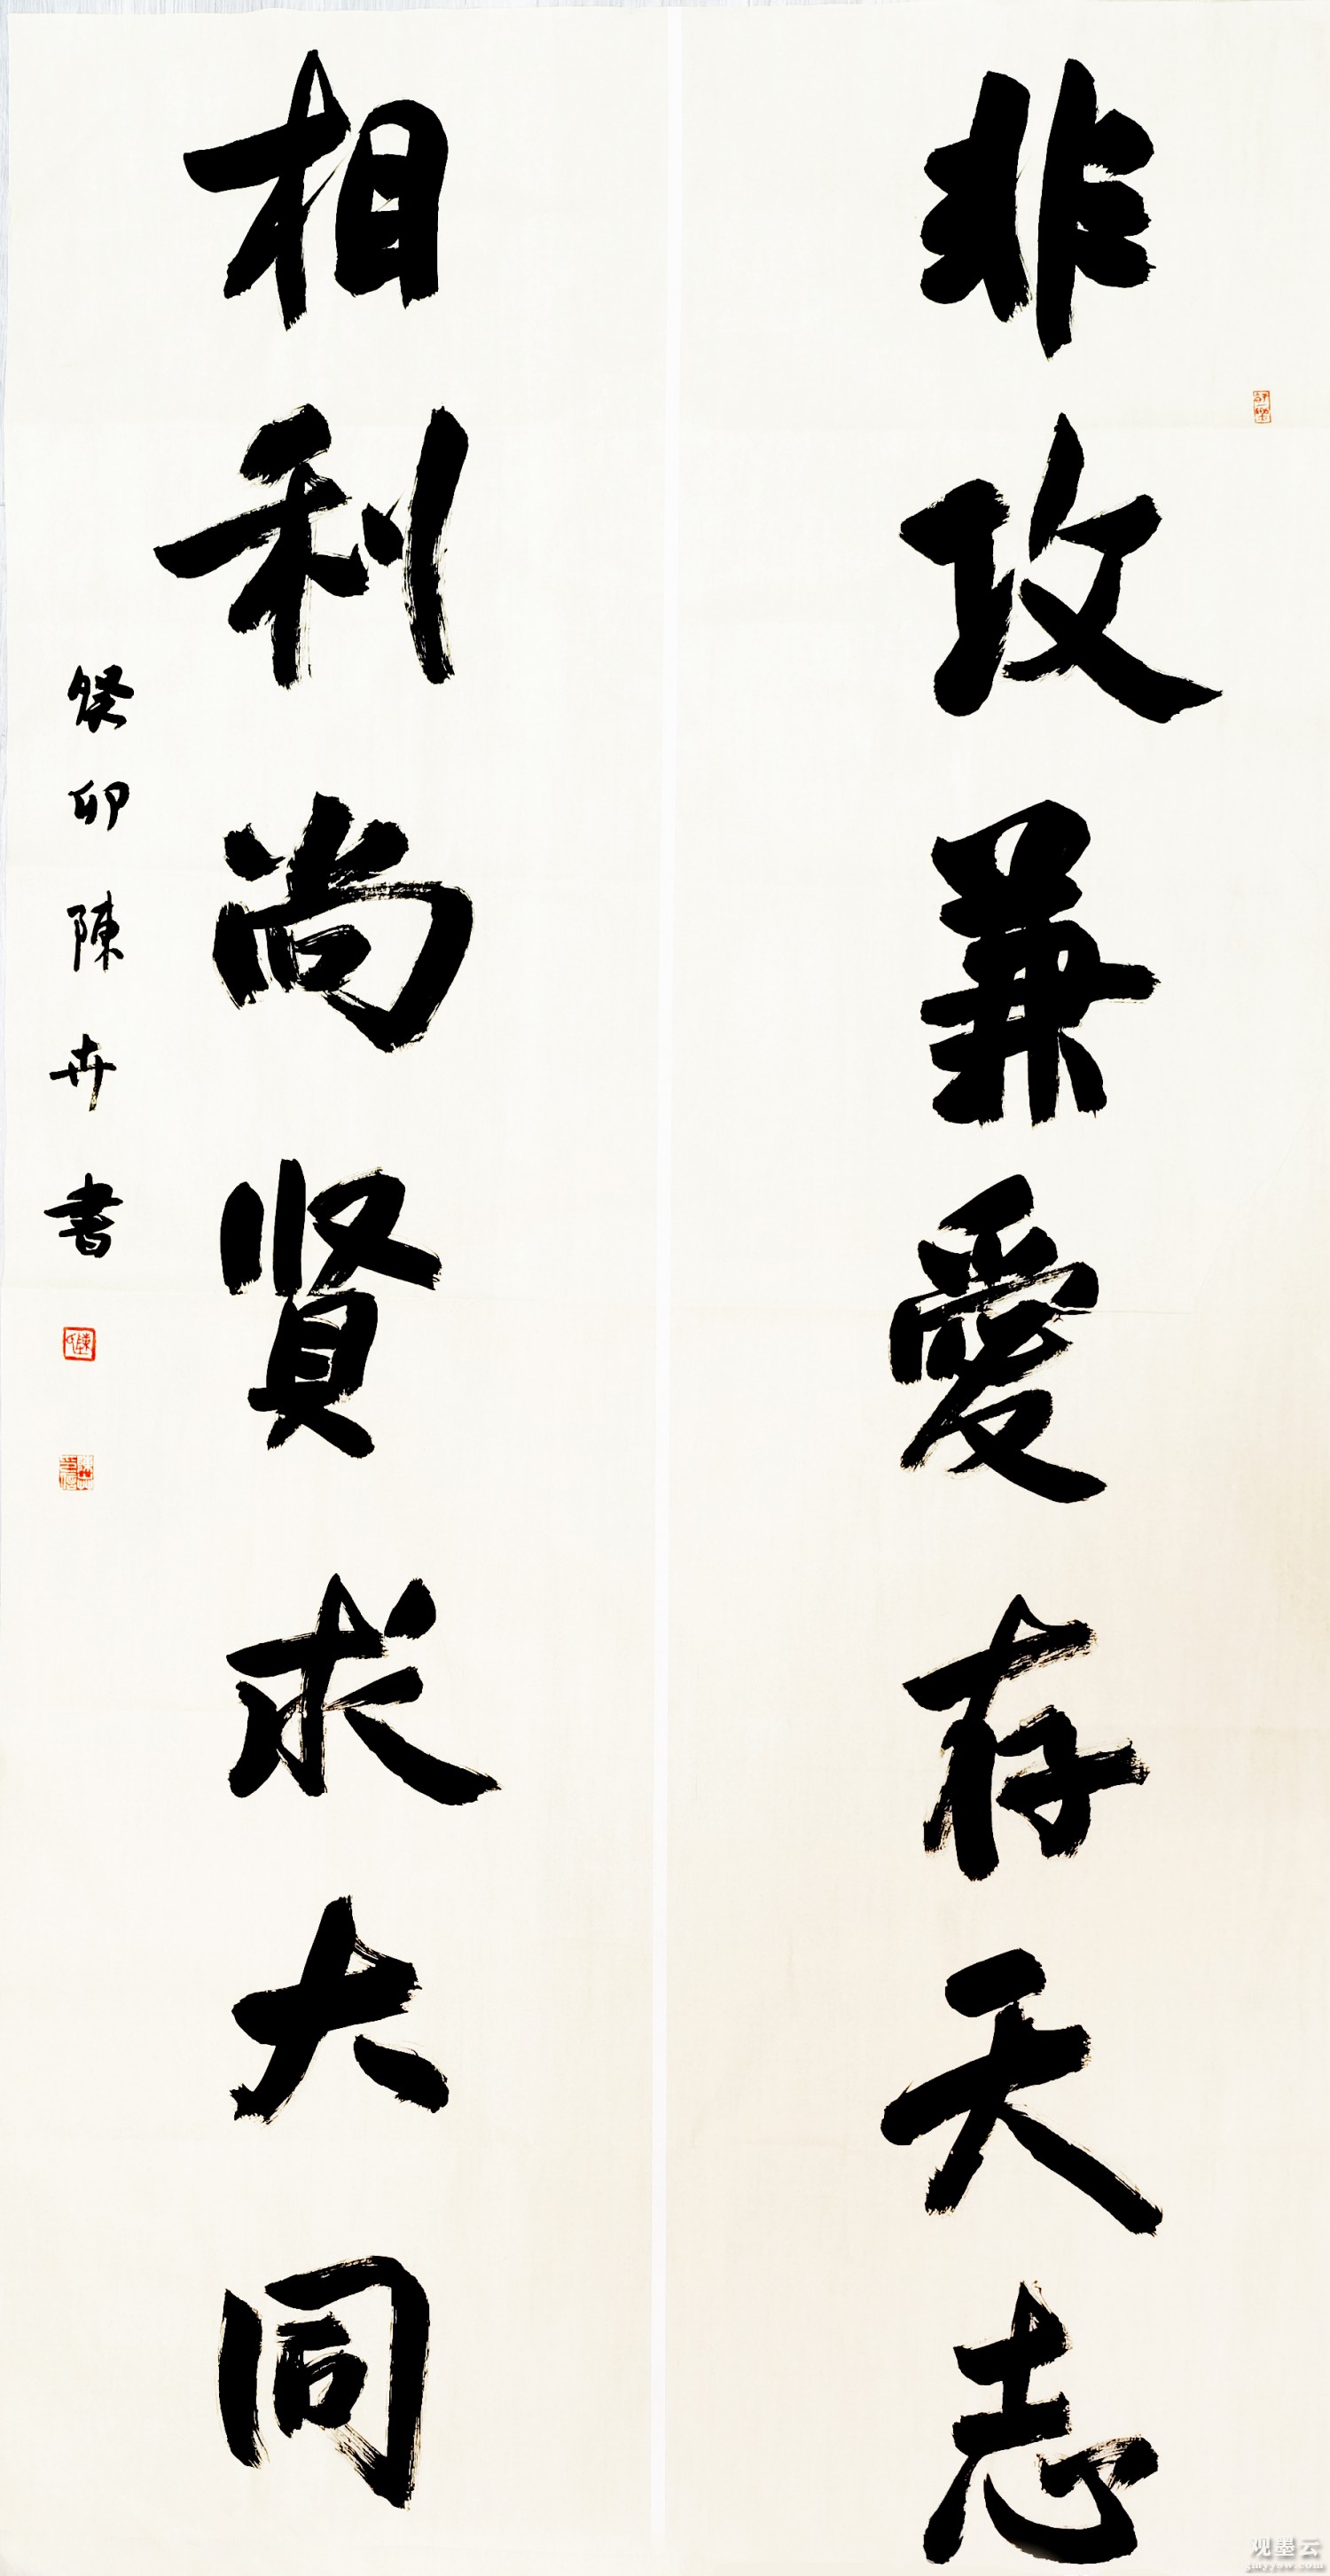 非攻兼愛存天志
相利尚賢求大同
癸卯陳卉書
观墨云
gmyysw.com